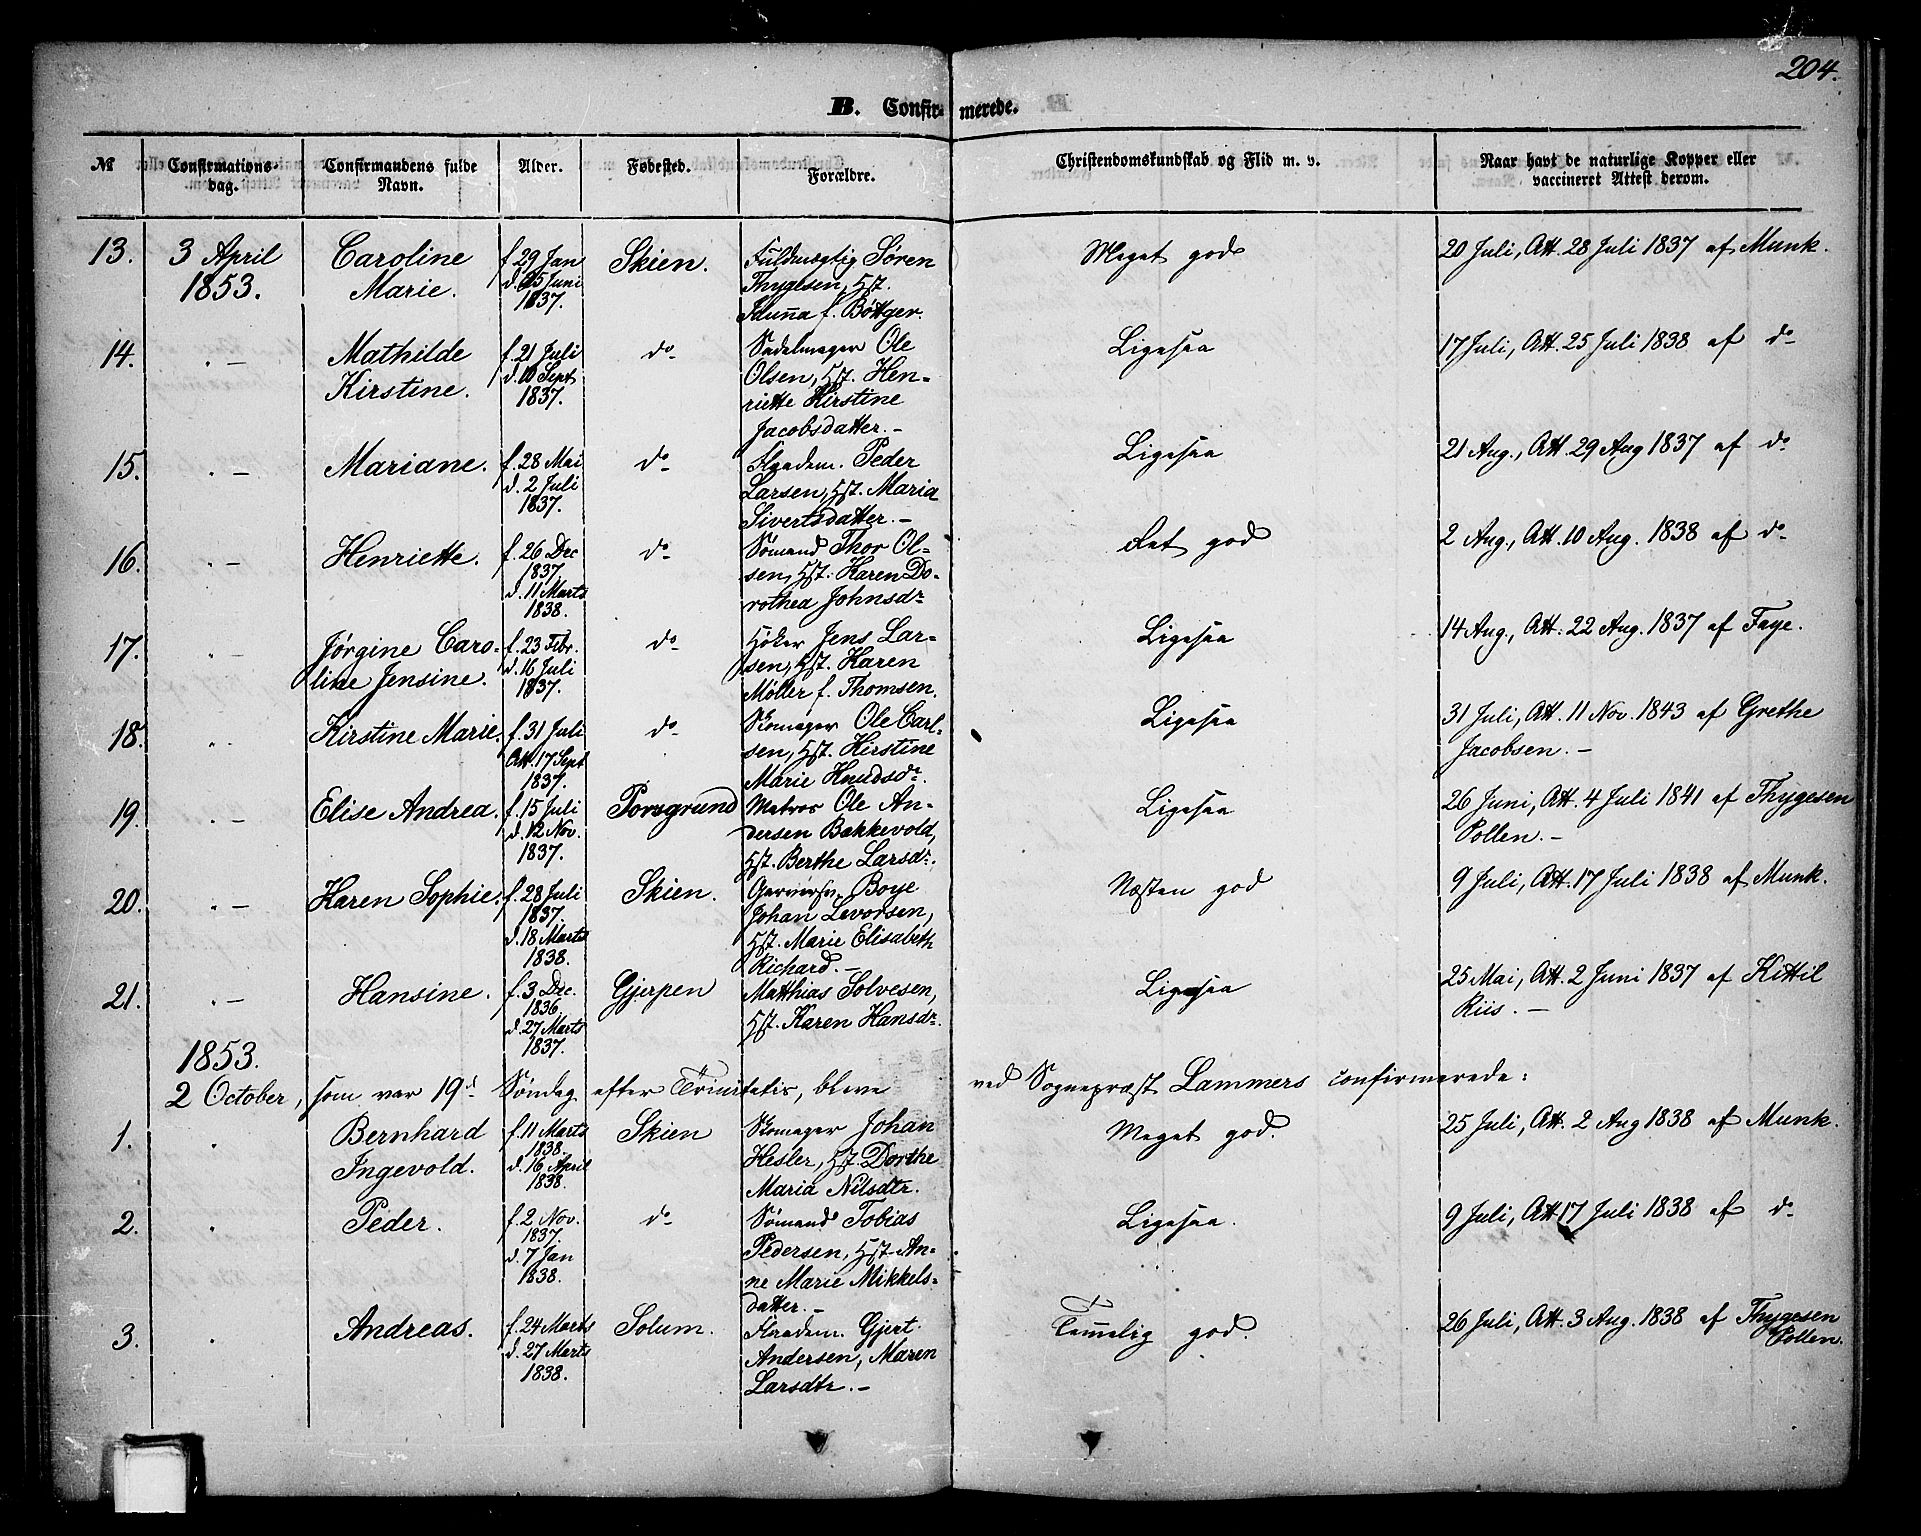 204.
B. Confirmerede.
№ Confirmations-dag. Confirmandens fulde Navn. Alder. Fødested. Forældre. Christendomskundskab og Flid m. v. Naar havt de naturlige Kopper eller vaccineret Attest derom.
13. 3 April Caroline f. 29 Jan Skien. Fuldmægtig Søren Meget god 20 Juli, Att. 28 Juli 1837 af Munk.
1853. Marie. d. 25 Juni Thygesen, Hst.
1837. f. Bøttger.
14. " — Mathilde f. 21 Juli do Sadelmager Ole Ligesaa 17 Juli, Att. 25 Juli 1838 af do
Kirstine. d. 10 Sept Olsen, Hst. Hen-
1837. riette Kirstine
Jacobsdatter. —
15. " — Mariane. f. 28 Mai do Flaadem. Peder Ligesaa 21 Aug., Att. 29 Aug 1837 af do
d. 2 Juli Larsen, Hst. Maria
1837. Sivertsdatter. —
16. " — Henriette. f. 26 Dec do Sømand Thor Ol- Ret god 2 Aug., Att. 10 Aug. 1838 af do
1837 sen, Hst. Karen Do-
d. 11 Marts rothea Johnsdr
1838.
17. " — Jørgine Caro- f. 23 Febr. do Høker Jens Lar- Ligesaa 14 Aug., Att. 22 Aug. 1837 af Faye.
line Jensine. d. 16 Juli sen, Hst. Karen
1837. Møller f. Thomsen.
18. " — Kirstine Marie. f. 31 Juli do Skomager Ole Carl- Ligesaa 31 Juli, Att. 11 Nov. 1843 af Grethe
Att. 17 Sept sen, Hst. Kirstine Jacobsen. —
1837. Marie Knudsdr.
19. " — Elise Andrea. f. 15 Juli Porsgrund Matros Ole An- Ligesaa 26 Juni, Att. 4 Juli 1841 af Thygesen
d. 12 Nov. dersen Bakkevold, Pollen. —
1837. Hst. Berthe Larsdr.
20. " — Karen Sophie. f. 28 Juli Skien. Boye Næsten god 9 Juli, Att. 17 Juli 1838 af Munk.
1837. Johan Levorsen,
d. 18 Marts Hst. Marie Elisabeth
1838. Richard. —
21. " — Hansine. f. 3 Dec. Gjerpen Matthias Solvesen, Ligesaa 25 Mai, Att. 2 Juni 1837 af Kittil
1836. Hst. Karen Hansdr. Riis. —
d. 27 Marts
1837.
1853.
2 October, som var 19d Søndag efter Trinitatis, bleve ved Sognepræst Lammers confirmerede:
1. " Bernhard f. 11 Marts Skien Skomager Johan Meget god. 25 Juli, Att. 2 Aug 1838 af Munk.
1838. Hesler, Hst. Dorthe
Ingevold. d. 16 April Maria Nilsdtr.
1838.
2. " Peder. f. 2 Nov. do Sømand Tobias Ligesaa. 9 Juli, Att. 17 Juli 1838 af do
1837. Pedersen, Hst. An-
d. 7 Jan ne Marie Mikkels-
1838. datter. —
3. " Andreas. f. 24 Marts Solum. Flaadem. Gjert Temelig god. 26 Juli, Att. 3 Aug. 1838 af Thygesen
d. 27 Marts Andersen, Maren Pollen.
1838. Larsdtr. —